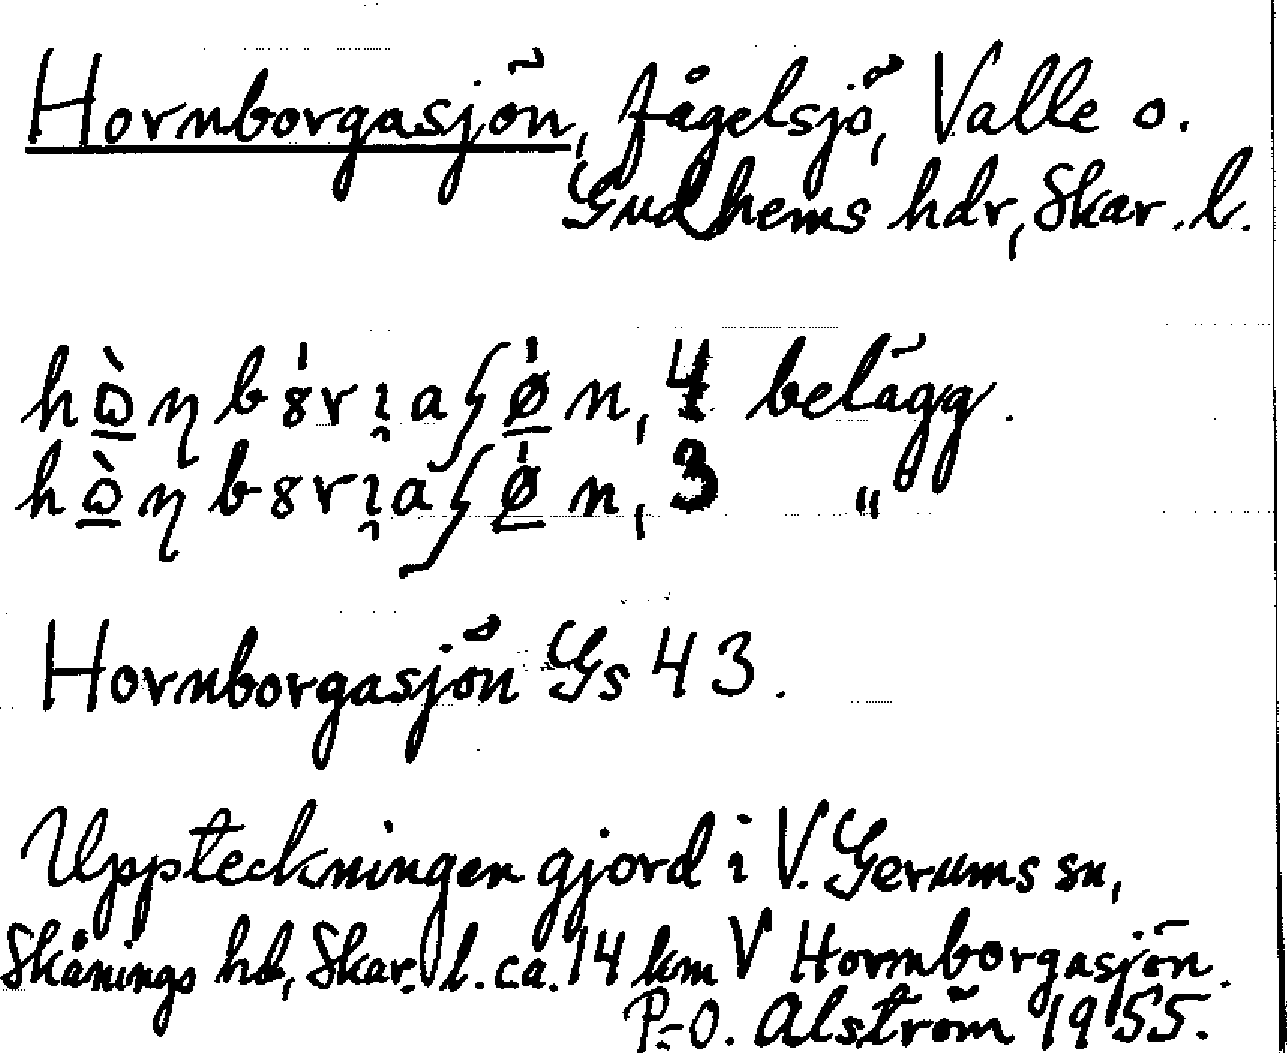 Hornborgasjön, fågelsjö, Valle o.
Gudhems hdr, Skar. l.
4 belägg.
3 "
Hornborgasjön Gs 43.
Uppteckningen gjord i V. Gerums sn,
Skånings hd, Skar. l. ca. 14 km V Hornborgasjön.
P.-O. Alström 1955.